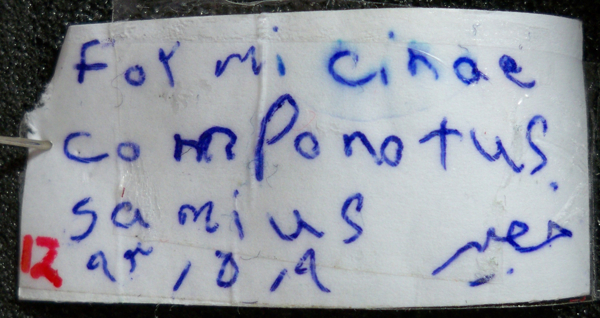 Formicinae
componotus
samius
12